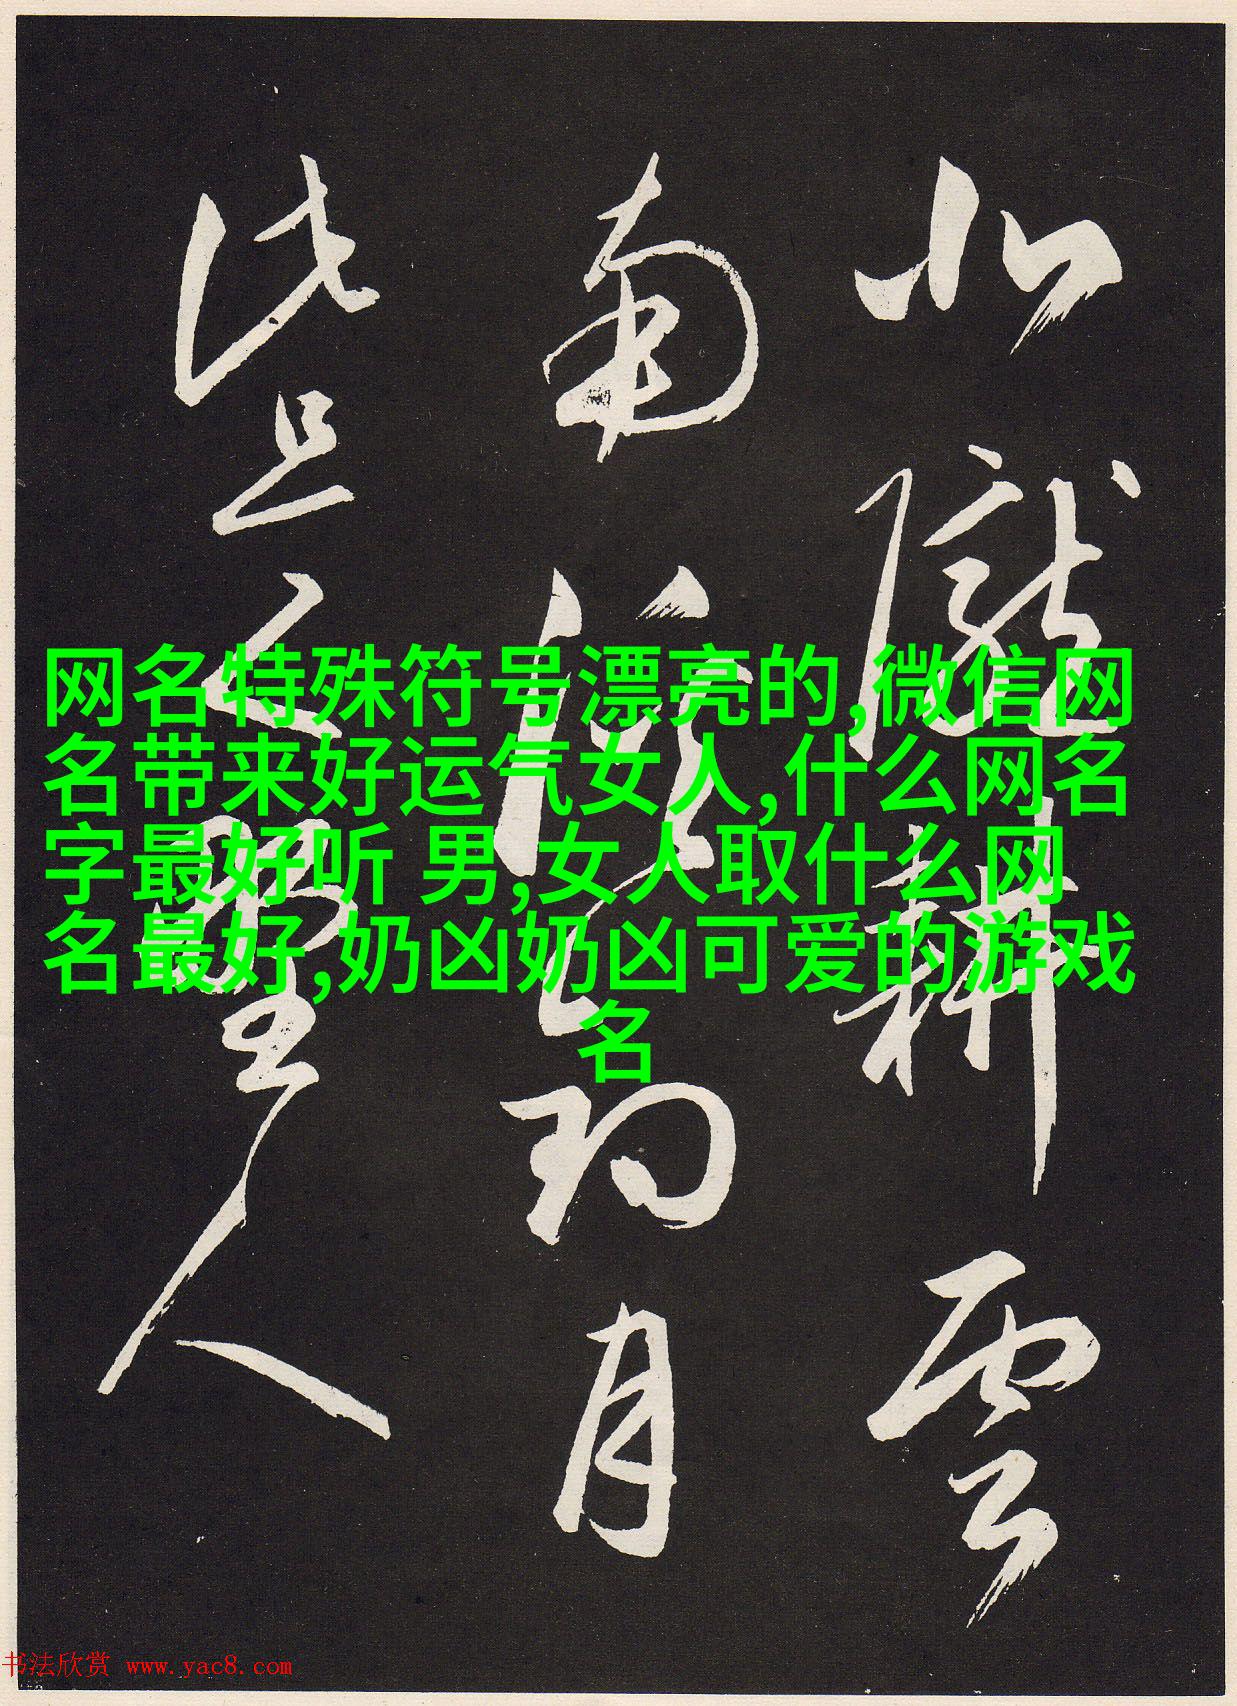 北隴耕雲
南溪釣月
此是野人
网名特殊符号漂亮的,微信网
名带来好运气女人,什么网名
字最好听 男,女人取什么网
名最好,奶凶奶凶可爱的游戏
名
书法欣赏 www.yac8.com